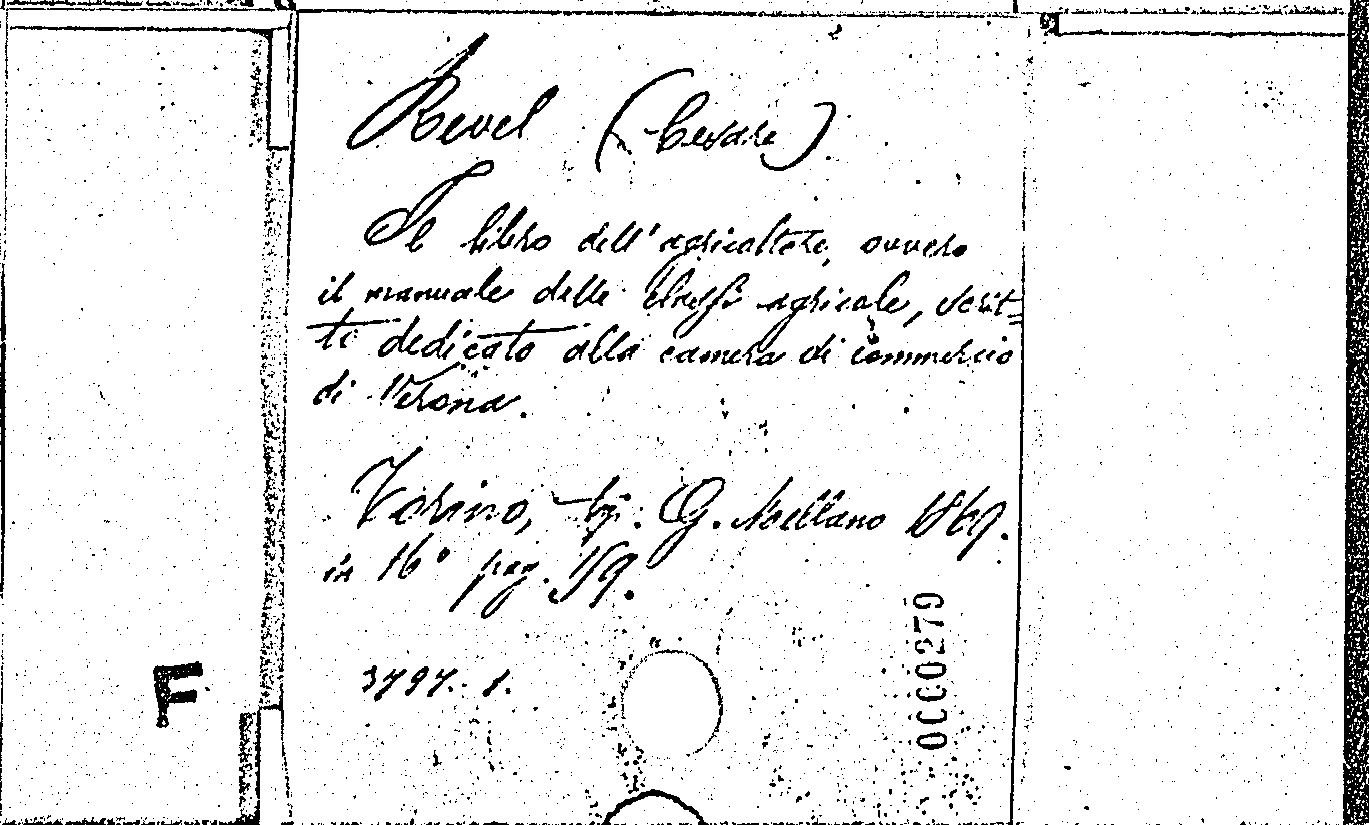 Revel (Cesare)
Il libro dell'agricoltore, ovvero
il manuale delle classi agricole, scrit=
to dedicato alla camera di commercio
di Verona.
Torino, tip. G. Mellano 1869.
in 16° pag. 159.
3797. 1.
0000279
F